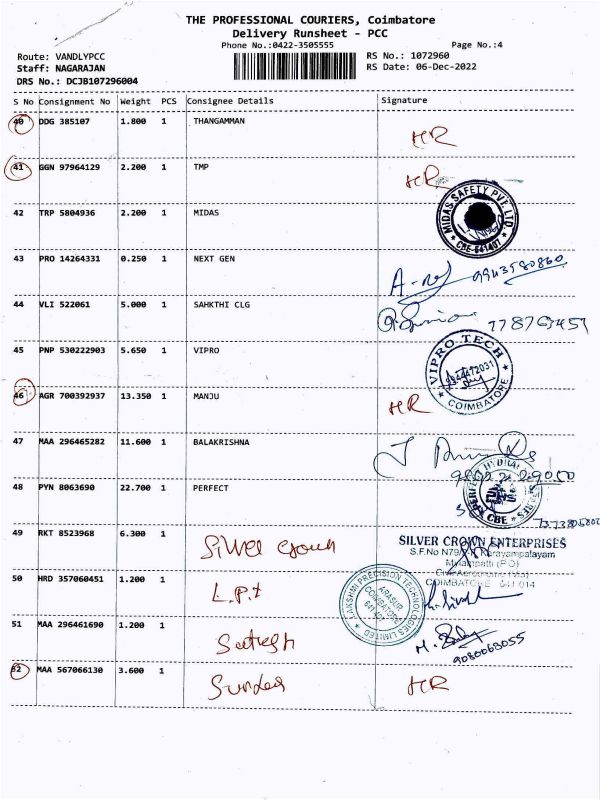 THE PROFESSIONAL COURIERS, Coimbatore
Delivery Runsheet - PCC
Phone No.:0422-3505555 Page No.:4
Route: VANDLYPCC RS No.: 1072960
Staff: NAGARAJAN RS Date: 06-Dec-2022
DRS No.: DCJB107296004
S No Consignment No Weight PCS Consignee Details Signature
40 DDG 385107 1.800 1 THANGAMMAN HR
41 GGN 97964129 2.200 1 TMP HR
42 TRP 5804936 2.200 1 MIDAS
MIDAS SAFETY PVT. LTD.
CBE-641407
43 PRO 14264331 0.250 1 NEXT GEN
9943580860
44 VLI 522061 5.000 1 SAHKTHI CLG
45 PNP 530222903 5.650 1 VIPRO
VIPRO TECH
9944472031
COIMBATORE
46 AGR 700392937 13.350 1 MANJU HR
47 MAA 296465282 11.600 1 BALAKRISHNA
48 PYN 8063690 22.700 1 PERFECT
PERFECT
CBE
49 RKT 8523968 6.300 1 Silver crown
SILVER CROWN ENTERPRISES
S.F.No Narayampalayam
Mylampatti (P.O)
COIMBATORE 641 014
50 HRD 357060451 1.200 1 L.P.t
LAKSHMI PRECISION TECHNOLOGIES LIMITED
ARASUR
COIMBATORE
641 407
51 MAA 296461690 1.200 1 Sathesh
9080068055
52 MAA 567066130 3.600 1 Sundar HR